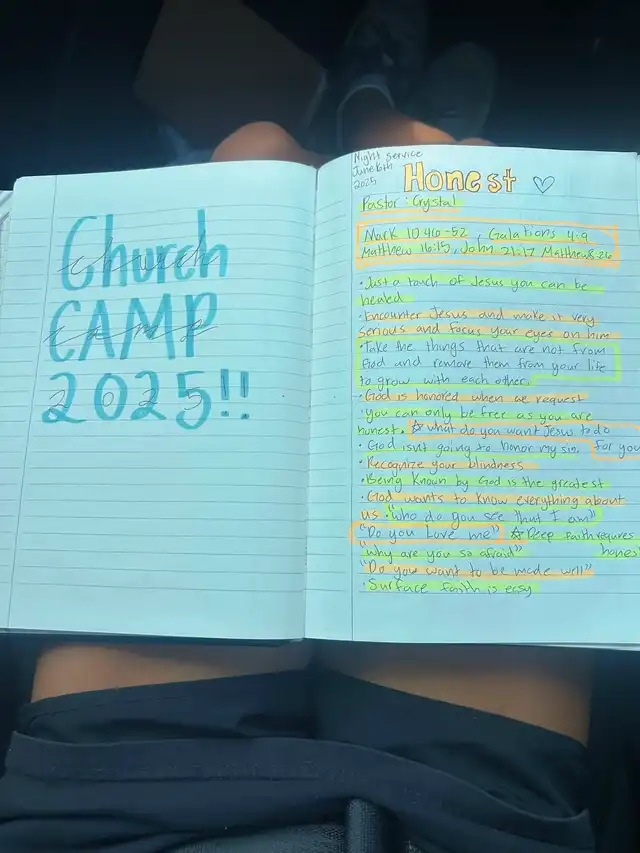 Church
CAMP
2025!!
Night service
June 16th
2025
Honest
Pastor: Crystal
Mark 10:46-52, Galations 4:9
Matthew 16:15, John 21:17 Matthew 8:26
• Just a touch of Jesus you can be
healed
• Encounter Jesus and make it very
serious and focus your eyes on him
• Take the things that are not from
God and remove them from your life
to grow with each other.
• God is honored when we request
• you can only be free as you are
honest. ☆ what do you want Jesus to do
for you
• God isnt going to honor my sin
• Recognize your blindness
• Being known by God is the greatest
• God wants to know everything about
us • "who do you see that I am"
"Do you Love me" ☆ Deep faith requres
hones
"why are you so afraid"
"Do you want to be made well"
• Surface faith is easy